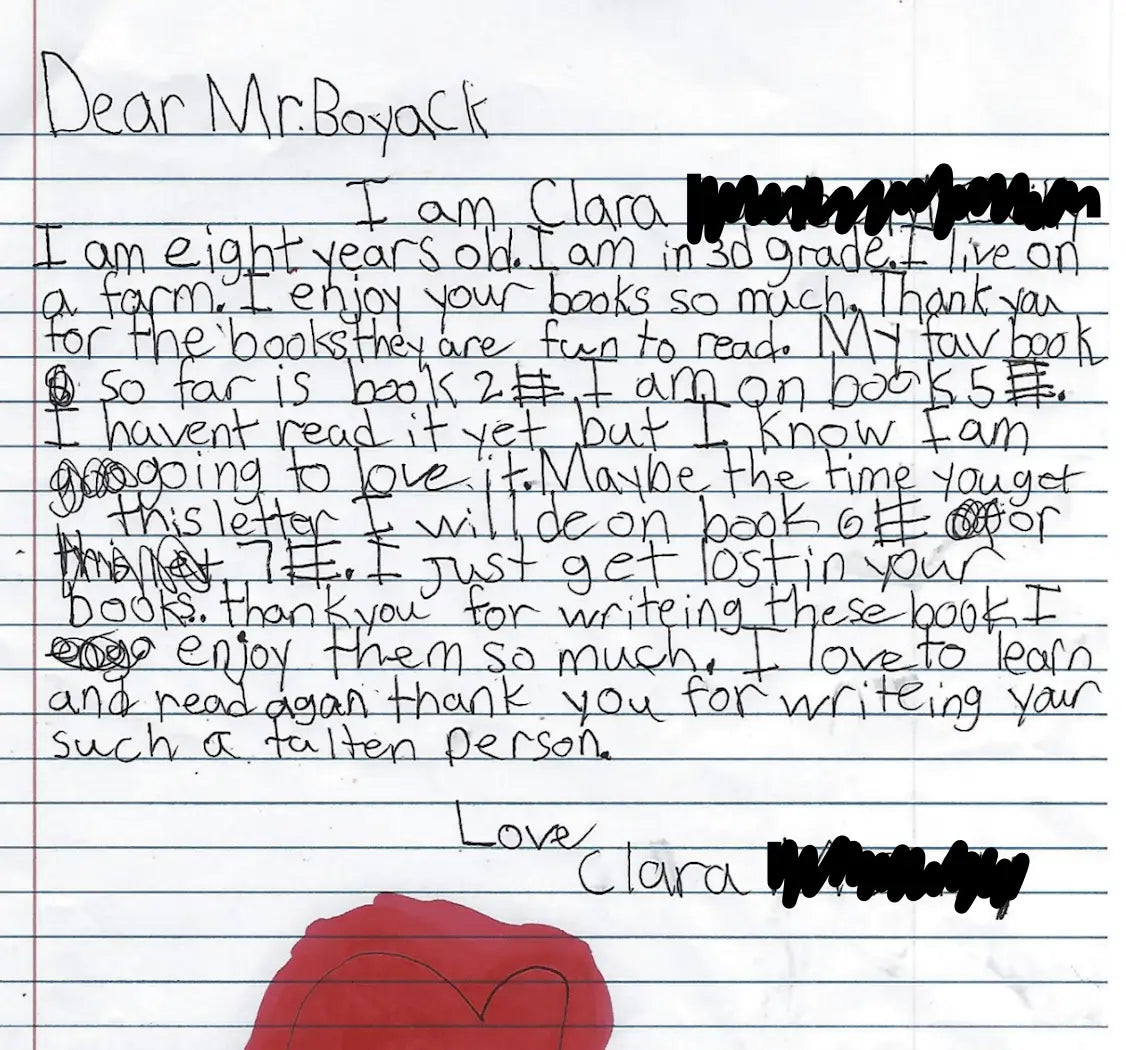 Dear Mr. Boyack
I am Clara
I am eight years old. I am in 3d grade. I live on
a farm. I enjoy your books so much. Thank you
for the books, they are fun to read. My fav book
so far is book 2 #. I am on book 5 #.
I havent read it yet but I know I am
going to love it. Maybe the time you get
this letter I will de on book 6 # or
7 #. I just get lost in your
books. thank you for writeing these book I
enjoy them so much. I love to learn
and read agan thank you for writeing your
such a talten person.
Love
Clara